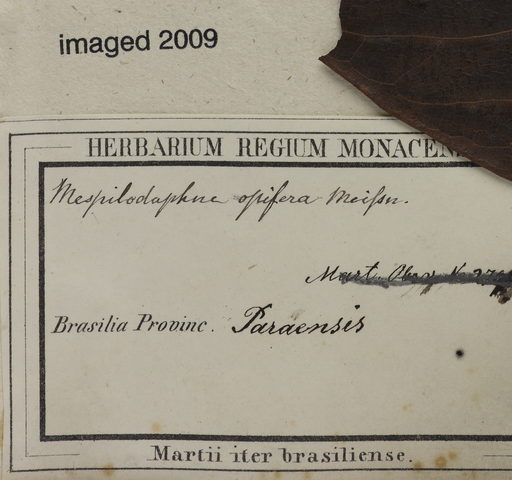 imaged 2009
HERBARIUM REGIUM MONACEN
Mespilodaphne opifera Meissn.
Mart. Obs. N. 27
Brasilia Provinc. Paraensis
Martii iter brasiliense.